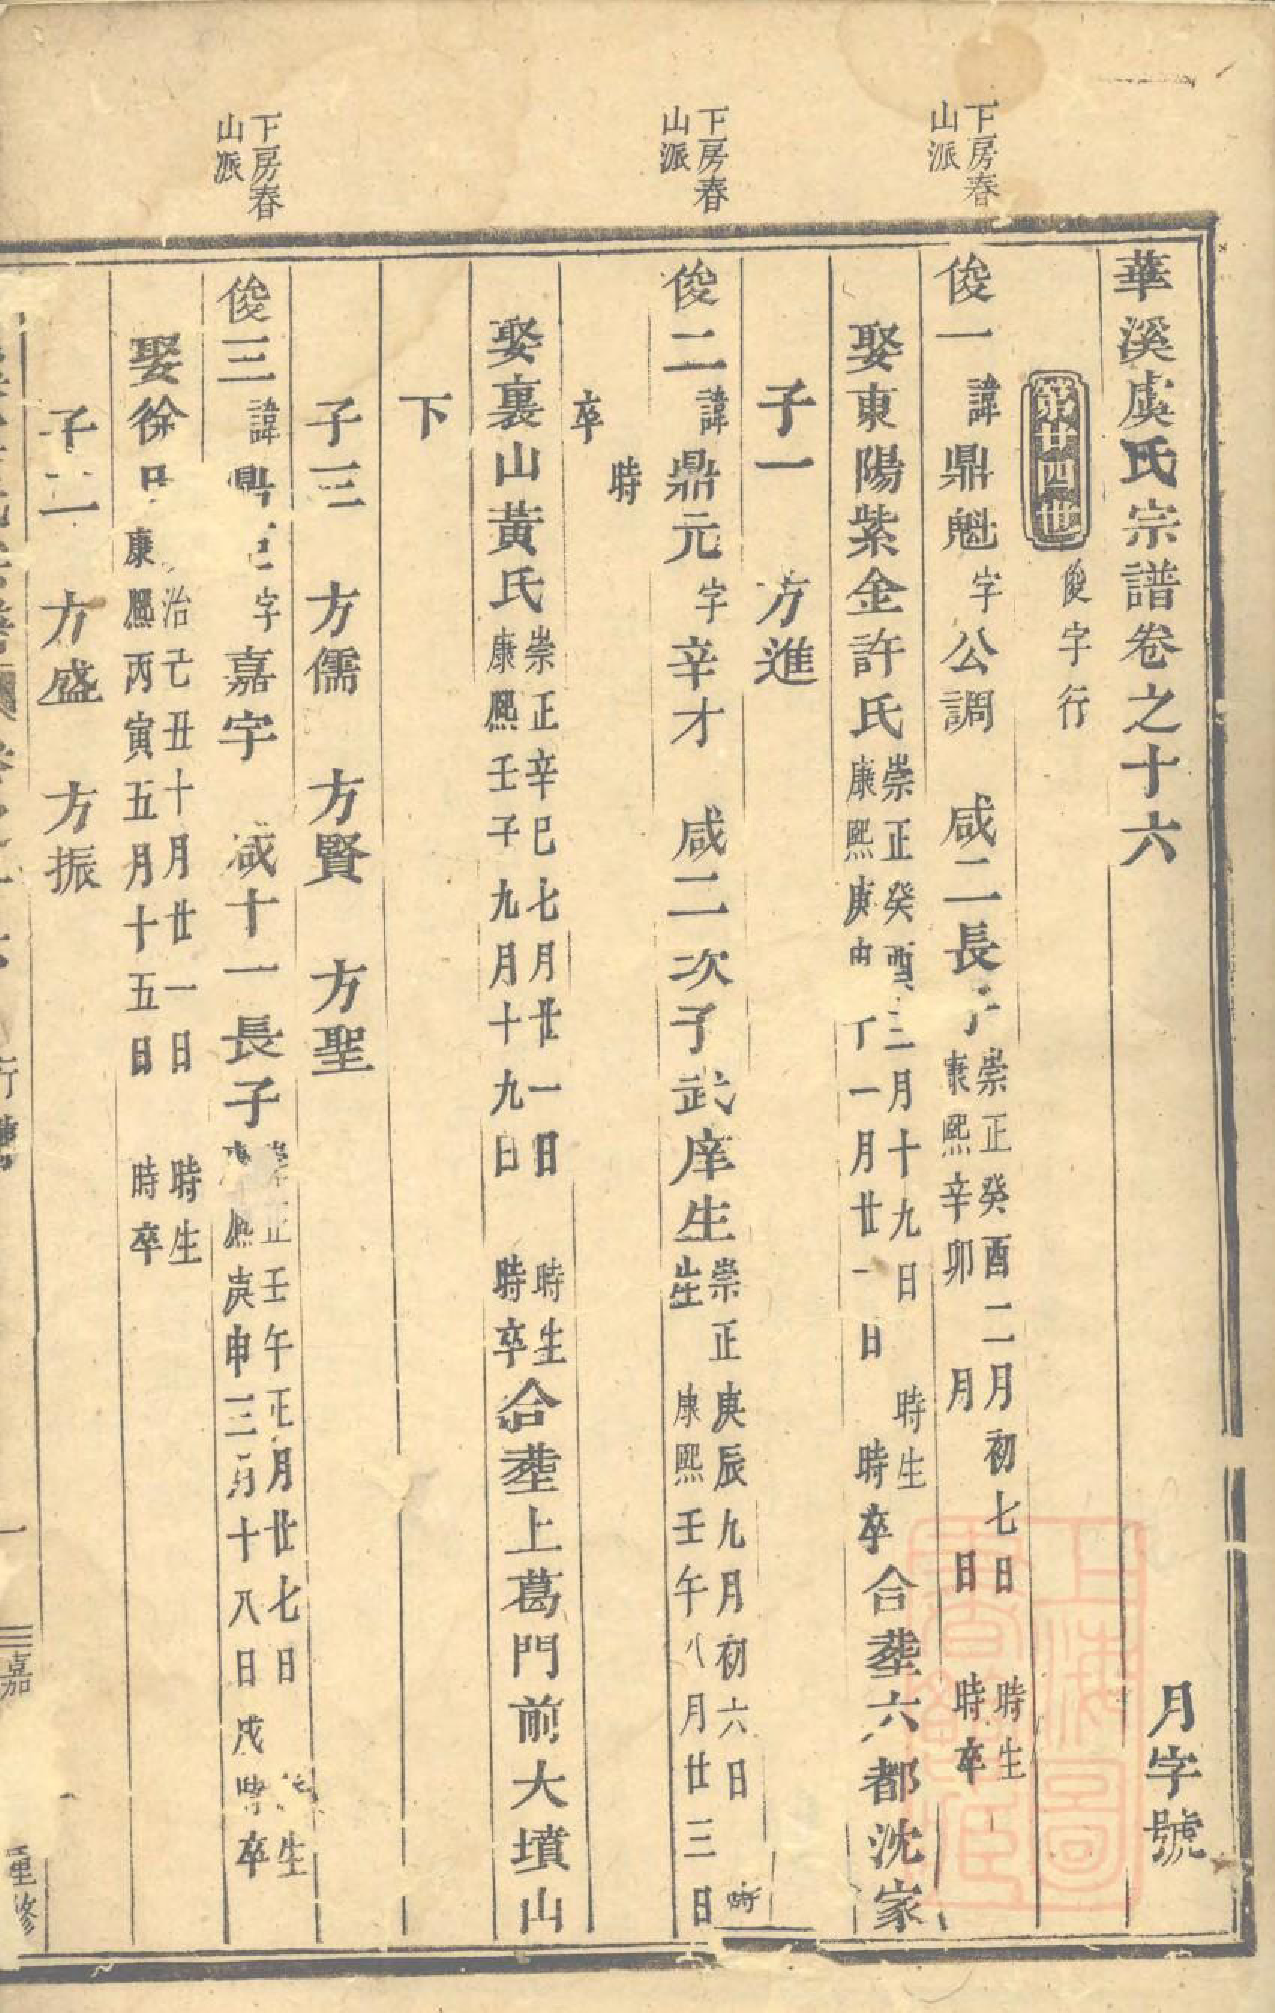 華溪虞氏宗譜卷之十六
月字號
第廿四世
俊字行
下房春
山派
俊一
諱
鼎魁
字
公調
咸二長子
崇正癸酉二月初七日 時生
康熙辛卯 月 日 時卒
娶東陽紫金許氏
崇正癸酉三月十九日 時生
康熙庚申 一月廿一日 時卒
合塟六都沈家
子一 方進
下房春
山派
俊二
諱
鼎元
字
辛才
咸二次子武庠生
崇正庚辰九月初六日 時
生 康熙壬午八月廿三日
時
卒
娶裏山黃氏
崇正辛巳七月廿一日 時生
康熙壬子九月十九日 時卒
合塟上葛門前大墳山
下
子三 方儒 方賢 方聖
下房春
山派
俊三
諱
鼎
字
嘉宇
咸十一長子
崇正壬午正月廿七日 生
康熙庚申三月十八日戌時卒
娶徐氏
治己丑十月廿一日 時生
康熙丙寅五月十五日 時卒
子二 方盛 方振
一
三嘉
重修